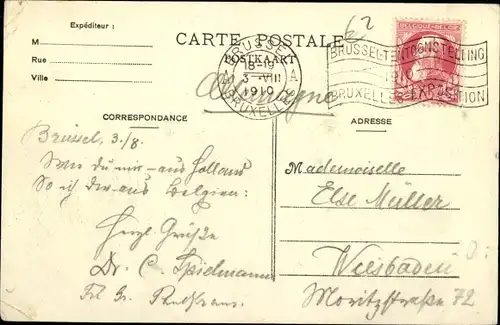 62
Expéditeur :
M
Rue
Ville
CARTE POSTALE
POSTKAART
BELGIQUE-BELGIË
BRUSSEL
18-19
3-VIII
1910
A A
BRUXELLES
BRUSSEL-TENTOONSTELLING
1910
BRUXELLES-EXPOSITION
Allemagne
CORRESPONDANCE
ADRESSE
Brüssel, 3./8.
Wie du mir – aus Holland
So ich dir aus Belgien:
Herzl. Grüße
Dr. C. Spielmann
Mademoiselle
Else Müller
Wiesbaden
Moritzstraße 72